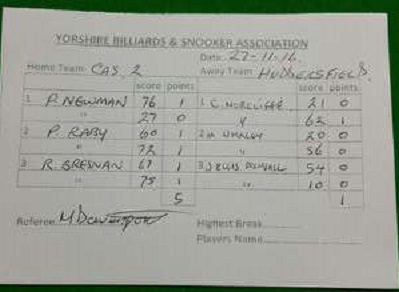 YORSHIRE BILLIARDS & SNOOKER ASSOCIATION
Date: 27-11-16.
Home Team: CAS 2 Away Team HUDDERSFIELD.
score points score points
1 P. NEWMAN 76 1 1 C. 21 0
" 27 0 " 62 1
2 P. RABY 60 1 2 20 0
" 72 1 " 56 0
3 R. BRESNAN 67 1 3 54 0
" 75 1 " 10 0
5 1
Referee Highest Break
Players Name